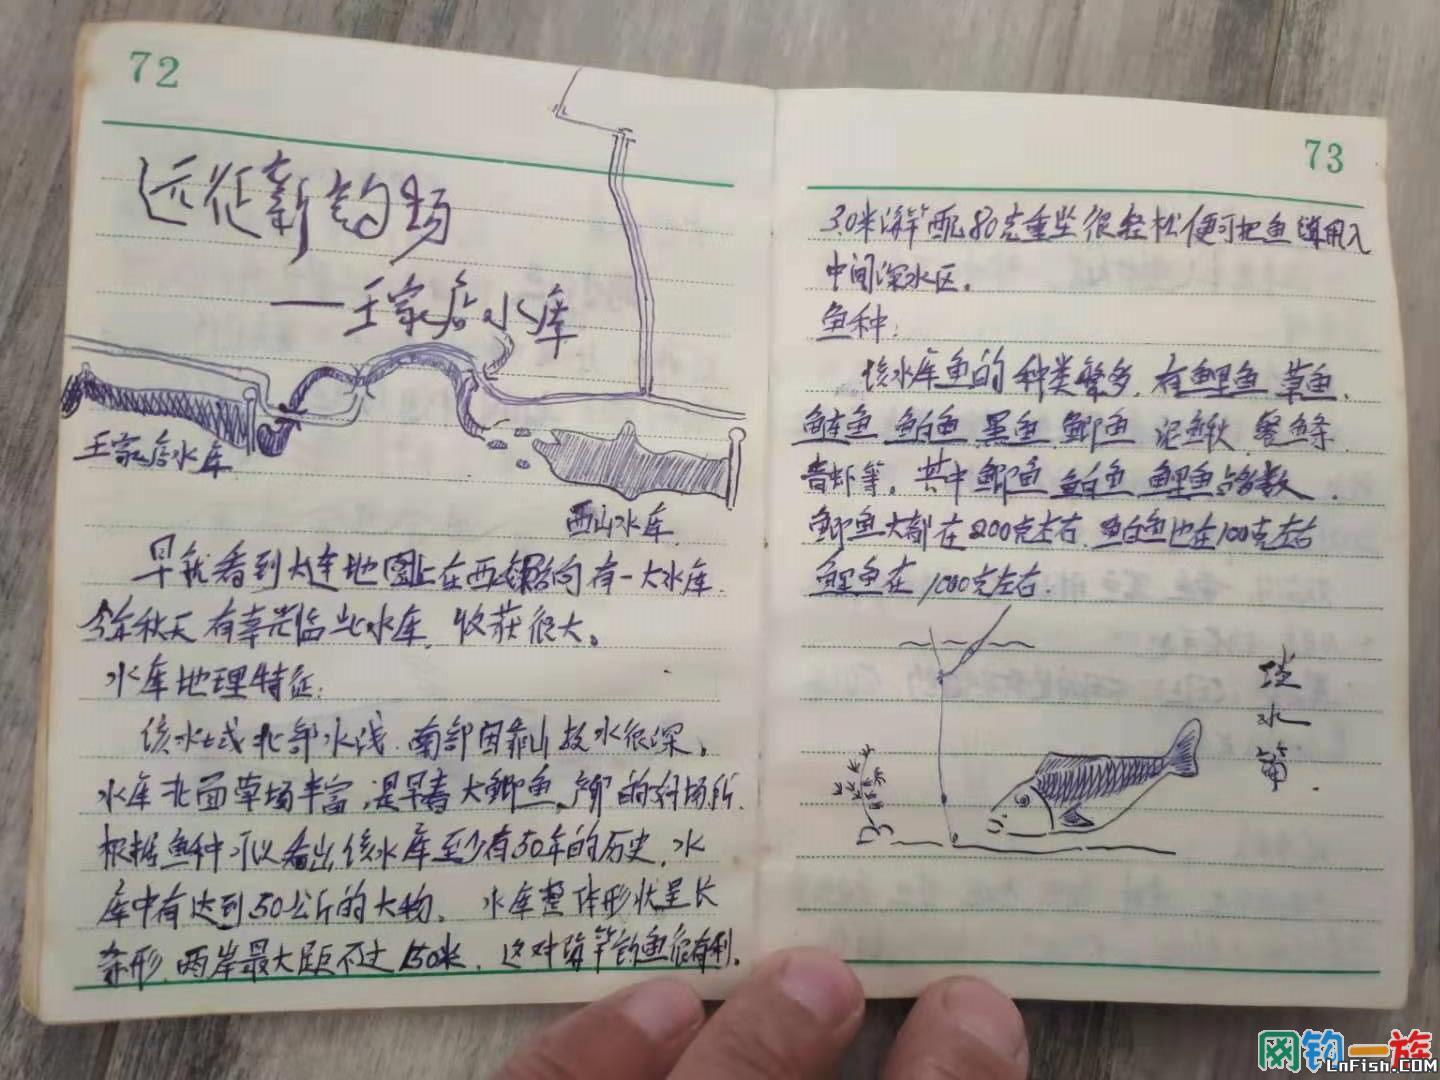 72
远征新钓场
——王家店水库
王家店水库
西山水库
早就看到大连地图上在西北路向有一大水库.
今年秋天有幸光临此水库,收获很大。
水库地理特征:
该水域北部水浅.南部因靠山故水很深。
水库北面草场丰富,是早春大鲫鱼产卵的好场所.
根据鱼种可以看出该水库至少有50年的历史.水
库中有达到50公斤的大物.水库整体形状呈长
条形.两岸最大距不过150米.这对海竿钓鱼很有利。
73
3.0米海竿配80克重坠很轻松便可把鱼饵甩入
中间深水区。
鱼种:
该水库鱼的种类繁多.有鲤鱼 草鱼.
鲢鱼 鲌鱼 黑鱼 鲫鱼 泥鳅 鰵鲦
青虾等.其中鲫鱼 鲌鱼 鲤鱼占多数.
鲫鱼大都在200克左右.鲌鱼也在100克左右
鲤鱼在1000克左右.
淡
水
篇
网钓一族
LnFish.COM